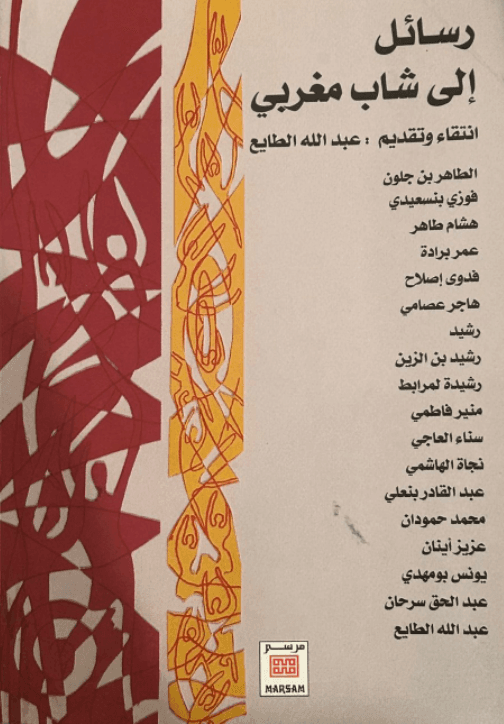 رسائل
إلى شاب مغربي
انتقاء وتقديم : عبد الله الطايع
الطاهر بن جلون
فوزي بنسعيدي
هشام طاهر
عمر برادة
فدوى إصلاح
هاجر عصامي
رشيد
رشيد بن الزين
رشيدة لمرابط
منير فاطمي
سناء العاجي
نجاة الهاشمي
عبد القادر بنعلي
محمد حمودان
عزيز أينان
يونس بومهدي
عبد الحق سرحان
عبد الله الطايع
مرسم
MARSAM